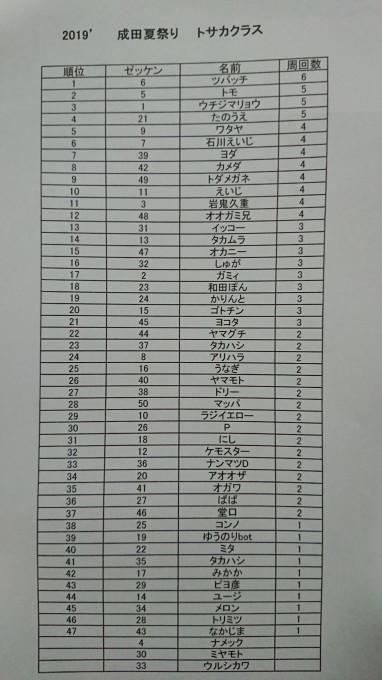 2019’ 成田夏祭り トサカクラス
順位 ゼッケン 名前 周回数
1 6 ツバッチ 6
2 5 トモ 5
3 1 ウチジマリョウ 5
4 21 たのうえ 5
5 9 ワタヤ 4
6 7 石川えいじ 4
7 39 ヨダ 4
8 42 カメダ 4
9 49 トダメガネ 4
10 11 えいじ 4
11 3 岩鬼久重 4
12 48 オオガミ兄 4
13 31 イッコー 3
14 13 タカムラ 3
15 47 オカニー 3
16 32 しゅが 3
17 2 ガミィ 3
18 23 和田ぽん 3
19 24 かりんと 3
20 15 ゴトチン 3
21 45 ヨコタ 3
22 44 ヤマグチ 2
23 37 タカハシ 2
24 8 アリハラ 2
25 16 うなぎ 2
26 40 ヤマモト 2
27 38 ドリー 2
28 50 マッパ 2
29 10 ラジイエロー 2
30 26 P 2
31 18 にし 2
32 12 ケモスター 2
33 36 ナンマツD 2
34 20 アオオザ 2
35 41 オガワ 2
36 27 ぱぱ 2
37 46 堂口 2
38 25 コンノ 1
39 19 ゆうのりbot 1
40 22 ミタ 1
41 35 タカハシ 1
42 17 みかか 1
43 29 ピヨ彦 1
44 14 ユージ 1
45 34 メロン 1
46 28 トリミツ 1
47 43 なかじま 1
4 ナメック
30 ミヤモト
33 ウルシカワ